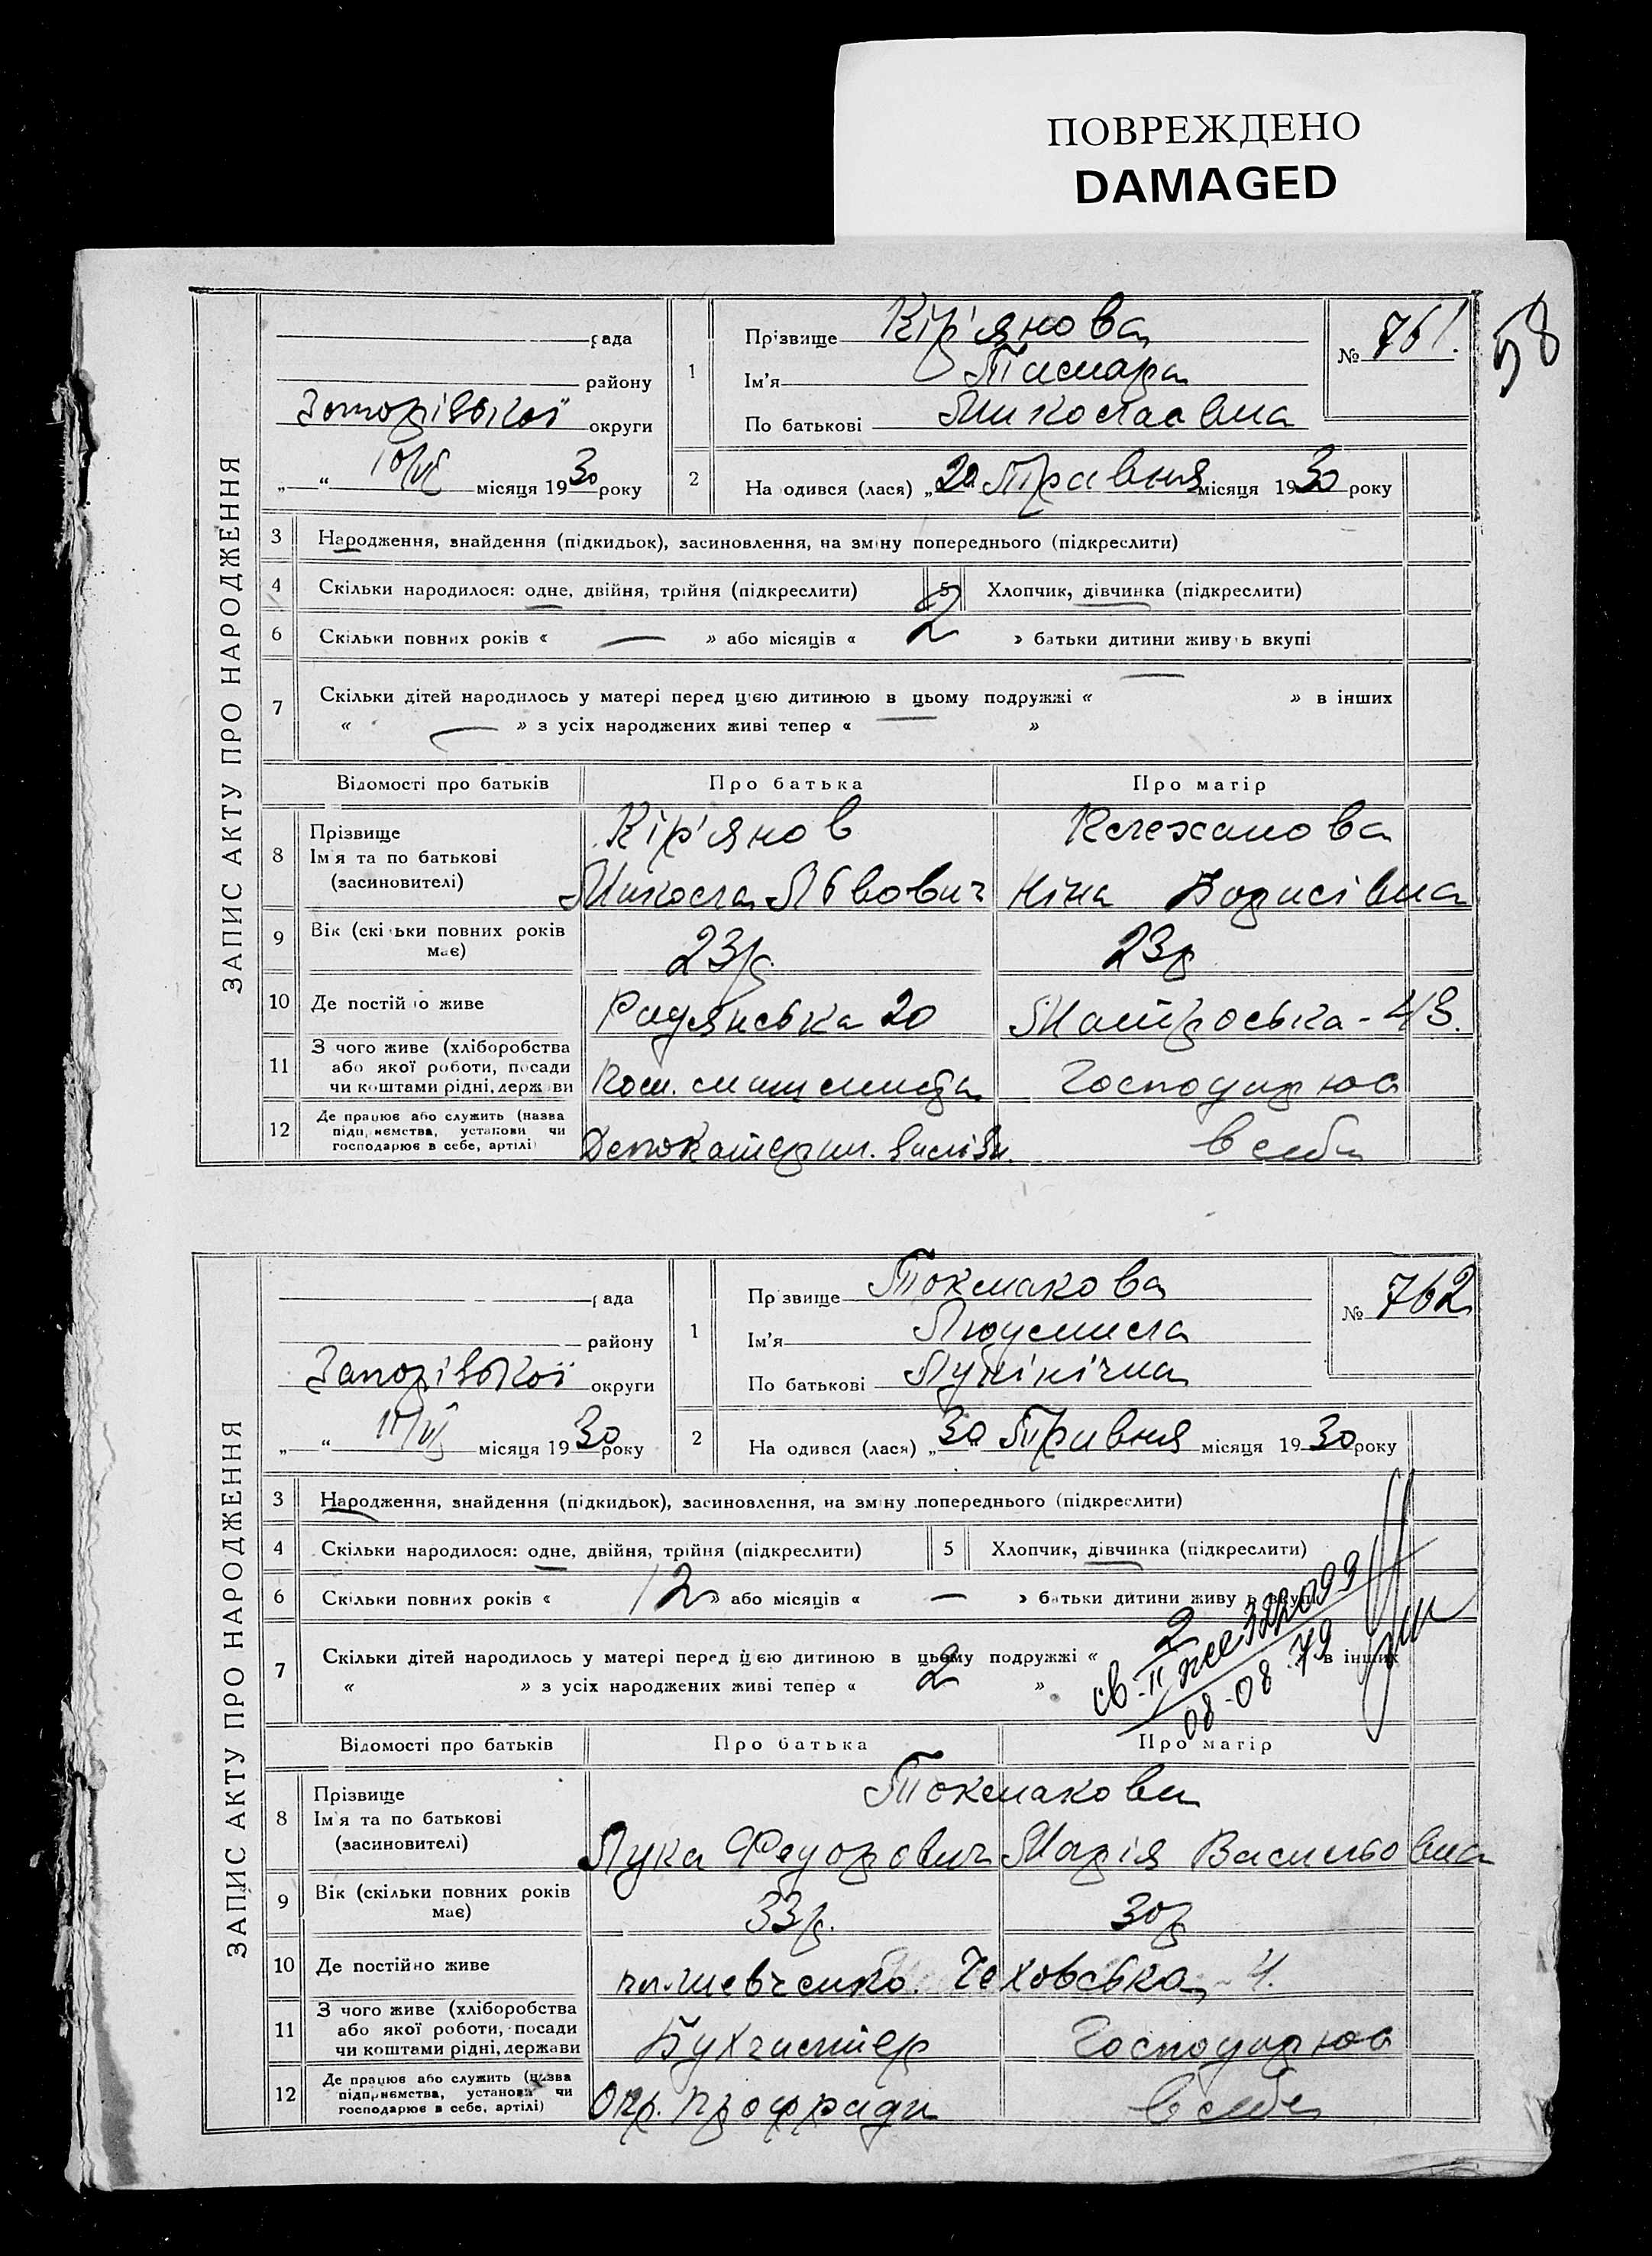 ПОВРЕЖДЕНО
DAMAGED
58
ЗАПИС АКТУ ПРО НАРОДЖЕННЯ
рада
району
Запорізької округи
„ “ 10/VI місяця 1930 року
1 Прізвище Кір'янова
Ім'я Тамара
По батькові Миколаївна
№ 761.
2 На одився (лася) „20“ Травня місяця 1930 року
3 Народження, знайдення (підкидьок), засиновлення, на зміну попереднього (підкреслити)
4 Скільки народилося: одне, двійня, трійня (підкреслити) 5 Хлопчик, дівчинка (підкреслити)
6 Скільки повних років « — » або місяців « 2 » батьки дитини живуть вкупі
7 Скільки дітей народилось у матері перед цією дитиною в цьому подружжі « — » в інших
« — » з усіх народжених живі тепер « — »
Відомості про батьків Про батька Про матір
8 Прізвище
Ім'я та по батькові
(засиновителі)
Кір'янов
Микола Львович Ніна Борисівна
9 Вік (скільки повних років має) 23р. 23р
10 Де постійно живе Радянська 20 Матроська - 43.
11 З чого живе (хліборобства
або якої роботи, посади
чи коштами рідні, держави
Господарює
12 Де працює або служить (назва
підприємства, установи чи
господарює в себе, артілі)
в себе
ЗАПИС АКТУ ПРО НАРОДЖЕННЯ
рада
району
Запорізької округи
„ “ місяця 1930 року
1 Прізвище Токмакова
Ім'я Людмила
По батькові
№ 762
2 На одився (лася) „30“ Травня місяця 1930 року
3 Народження, знайдення (підкидьок), засиновлення, на зміну попереднього (підкреслити)
4 Скільки народилося: одне, двійня, трійня (підкреслити) 5 Хлопчик, дівчинка (підкреслити)
6 Скільки повних років « 12 » або місяців « — » батьки дитини живуть вкупі
7 Скільки дітей народилось у матері перед цією дитиною в цьому подружжі « 2 » в інших
« » з усіх народжених живі тепер « 2 »
08-08.79
Відомості про батьків Про батька Про матір
8 Прізвище
Ім'я та по батькові
(засиновителі)
Токмакови
Лука Федорович Марія Васильовна
9 Вік (скільки повних років має) 33р. 30р
10 Де постійно живе Чеховська - 4.
11 З чого живе (хліборобства
або якої роботи, посади
чи коштами рідні, держави
Бухгалтер Господарює
12 Де працює або служить (назва
підприємства, установи чи
господарює в себе, артілі)
Окр. профради в себе